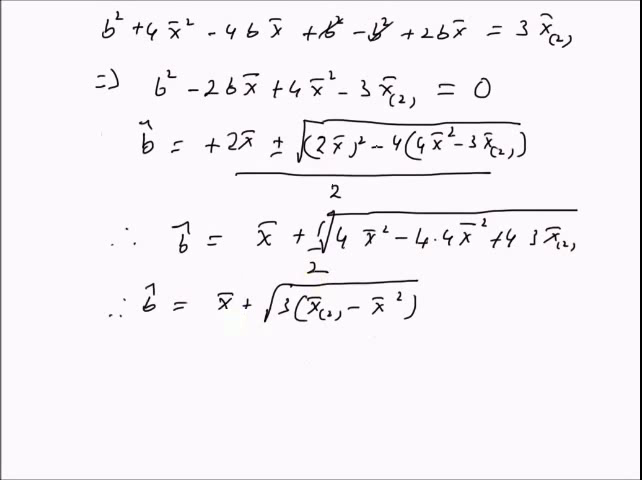 b² + 4x̄² - 4bx̄ + b² - b² + 2bx̄ = 3x̄₍₂₎
=) b² - 2bx̄ + 4x̄² - 3x̄₍₂₎ = 0
b̂ = +2x̄ ± √((2x̄)² - 4(4x̄² - 3x̄₍₂₎))
2
∴ b̂ = x̄ + 1/2 √(4x̄² - 4·4x̄² + 4 3x̄₍₂₎)
∴ b̂ = x̄ + √(3(x̄₍₂₎ - x̄²))